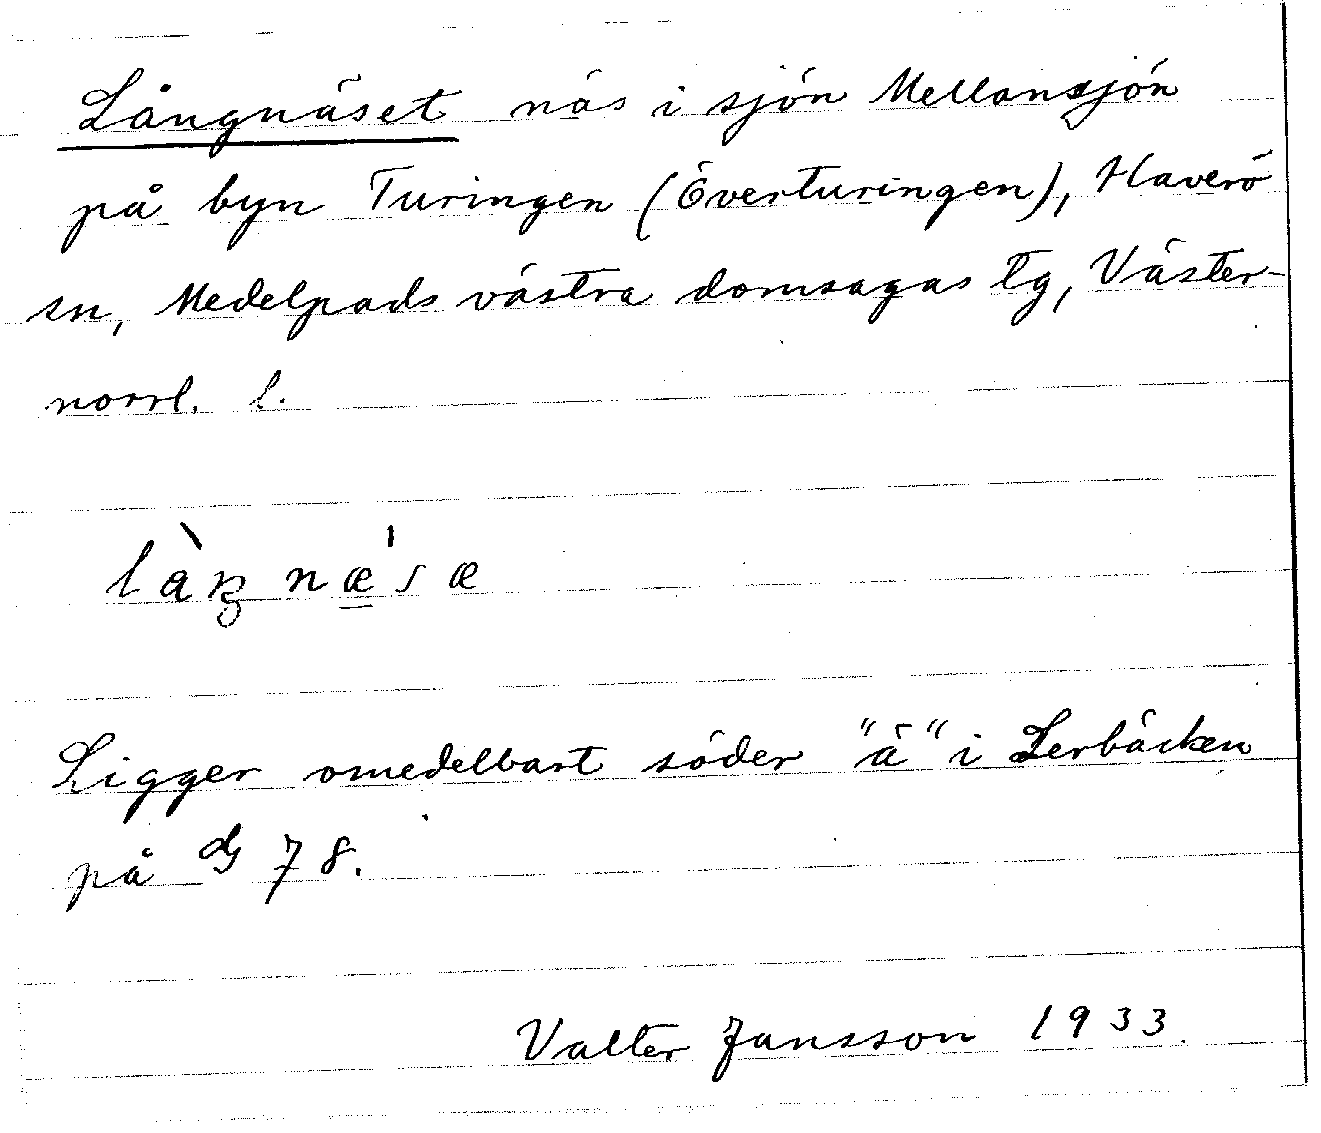 Långnäset näs i sjön Mellansjön
på byn Turingen (Överturingen), Haverö
sn, Medelpads västra domsagas tg, Väster-
norrl. l.
làŋ næ̱'sæ
Ligger omedelbart söder "ä" i Lerbäcken
på 78.
Valter Jansson 1933.